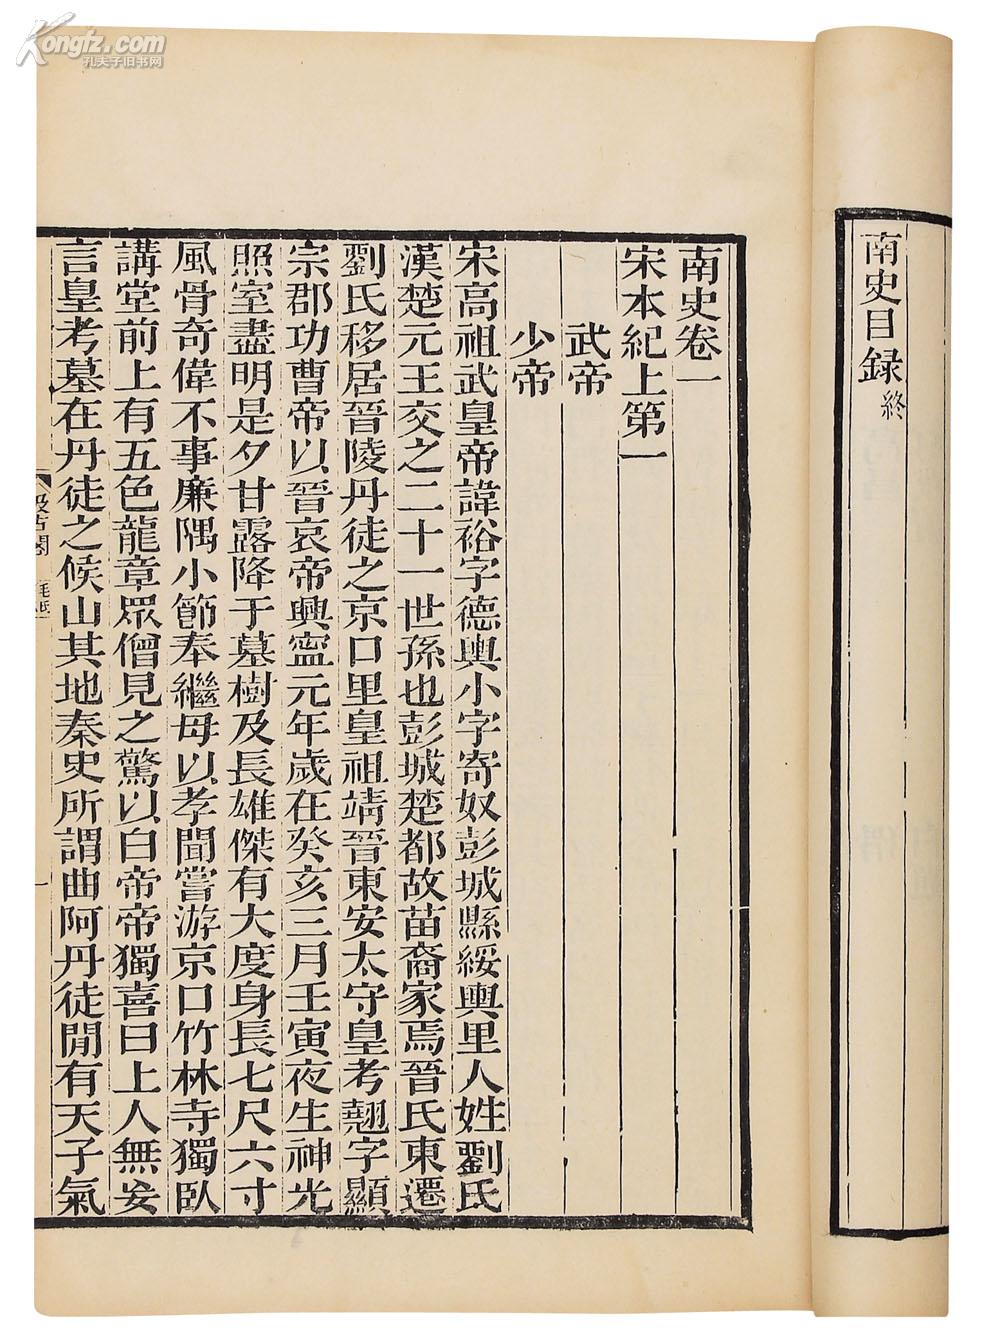 Kongfz.com
孔夫子旧书网
南史目録終
南史卷一
宋本紀上第一
武帝
少帝
宋高祖武皇帝諱裕字德輿小字寄奴彭城縣綏輿里人姓劉氏
漢楚元王交之二十一世孫也彭城楚都故苗裔家焉晉氏東遷
劉氏移居晉陵丹徒之京口里皇祖靖晉東安太守皇考翹字顯
宗郡功曹帝以晉哀帝興寍元年歲在癸亥三月壬寅夜生神光
照室盡明是夕甘露降于墓樹及長雄傑有大度身長七尺六寸
風骨奇偉不事廉隅小節奉繼母以孝聞嘗游京口竹林寺獨臥
講堂前上有五色龍章眾僧見之驚以白帝帝獨喜曰上人無妄
言皇考墓在丹徒之候山其地秦史所謂曲阿丹徒閒有天子氣
一